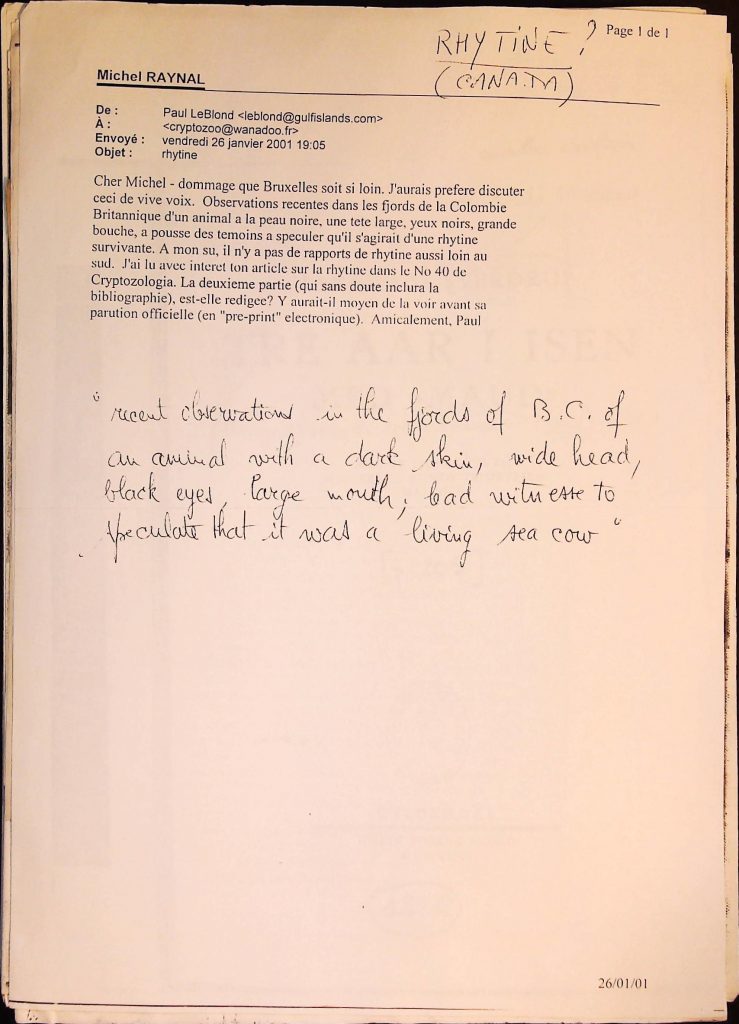 RHYTINE ?
(CANADA)
Page 1 de 1
Michel RAYNAL
De : Paul LeBlond <leblond@gulfislands.com>
À : <cryptozoo@wanadoo.fr>
Envoyé : vendredi 26 janvier 2001 19:05
Objet : rhytine
Cher Michel - dommage que Bruxelles soit si loin. J'aurais prefere discuter
ceci de vive voix. Observations recentes dans les fjords de la Colombie
Britannique d'un animal a la peau noire, une tete large, yeux noirs, grande
bouche, a pousse des temoins a speculer qu'il s'agirait d'une rhytine
survivante. A mon su, il n'y a pas de rapports de rhytine aussi loin au
sud. J'ai lu avec interet ton article sur la rhytine dans le No 40 de
Cryptozologia. La deuxieme partie (qui sans doute inclura la
bibliographie), est-elle redigee? Y aurait-il moyen de la voir avant sa
parution officielle (en "pre-print" electronique). Amicalement, Paul
" recent observations in the fjords of B.C. of
an animal with a dark skin, wide head,
black eyes, large mouth, lead witnesse to
speculate that it was a living sea cow "
26/01/01